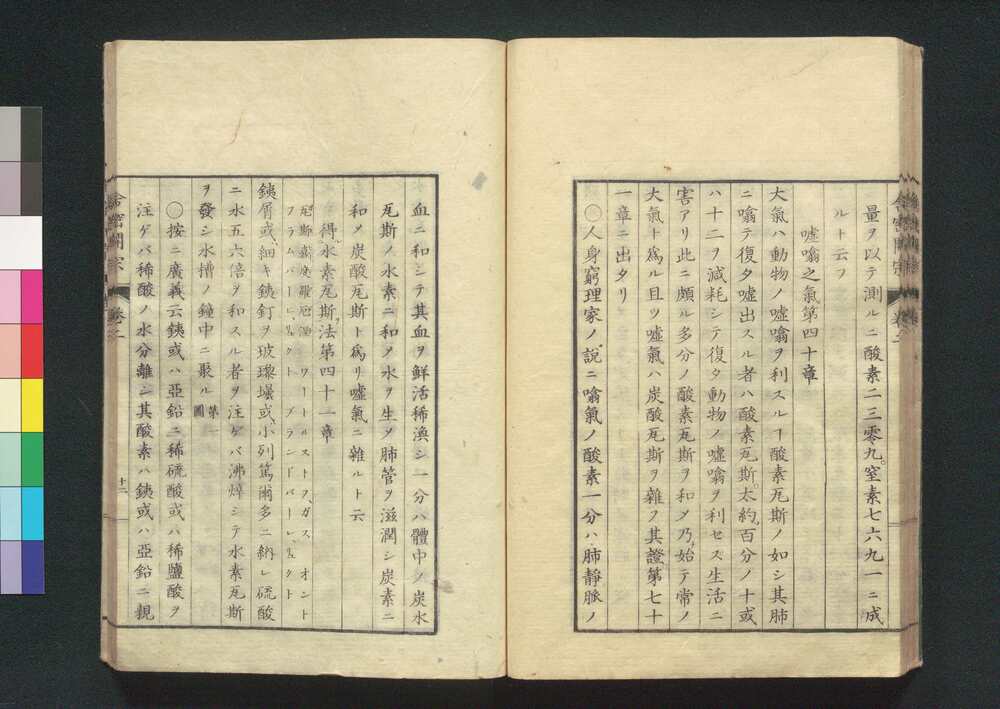 量ヲ以テ測ルニ酸素二三零九。窒素七六九一ニ成
ルト云フ
嘘噏之氣第四十章
大氣ハ動物ノ嘘噏ヲ利スルヿ酸素瓦斯ノ如シ其肺
ニ噏テ復タ嘘出スル者ハ酸素瓦斯太約百分ノ十或
ハ十二ヲ減耗シテ復タ動物ノ嘘噏ヲ利セス生活ニ
害アリ此ニ頗ル多分ノ酸素瓦斯ヲ和メ乃始テ常ノ
大氣ト爲ル且ツ嘘氣ハ炭酸瓦斯ヲ雜フ其證第七十
一章ニ出タリ
〇人身窮理家ノ說ニ噏氣ノ酸素一分ハ肺靜脈ノ
血ニ和シテ其血ヲ鮮活稀渙シ一分ハ體中ノ炭水
瓦斯ノ水素ニ和メ水ヲ生メ肺管ヲ滋潤シ炭素ニ
和メ炭酸瓦斯ト爲リ嘘氣ニ雜ルト云
得水素瓦斯法第四十一章
ワートルストフ、ガス オント
フラムバー ブランドバー
銕屑或細キ銕釘ヲ玻瓈壜或小列篤爾多ニ納レ硫酸
ニ水五六倍ヲ和スル者ヲ注ゲバ沸焯シテ水素瓦斯
ヲ發シ水槽ノ鐘中ニ聚ル 第一圖
〇按ニ廣義云銕或ハ亞鉛ニ稀硫酸或ハ稀鹽酸ヲ
注ゲバ稀酸ノ水分離シ其酸素ハ銕或ハ亞鉛ニ親
舎密開宗 卷之二
十二